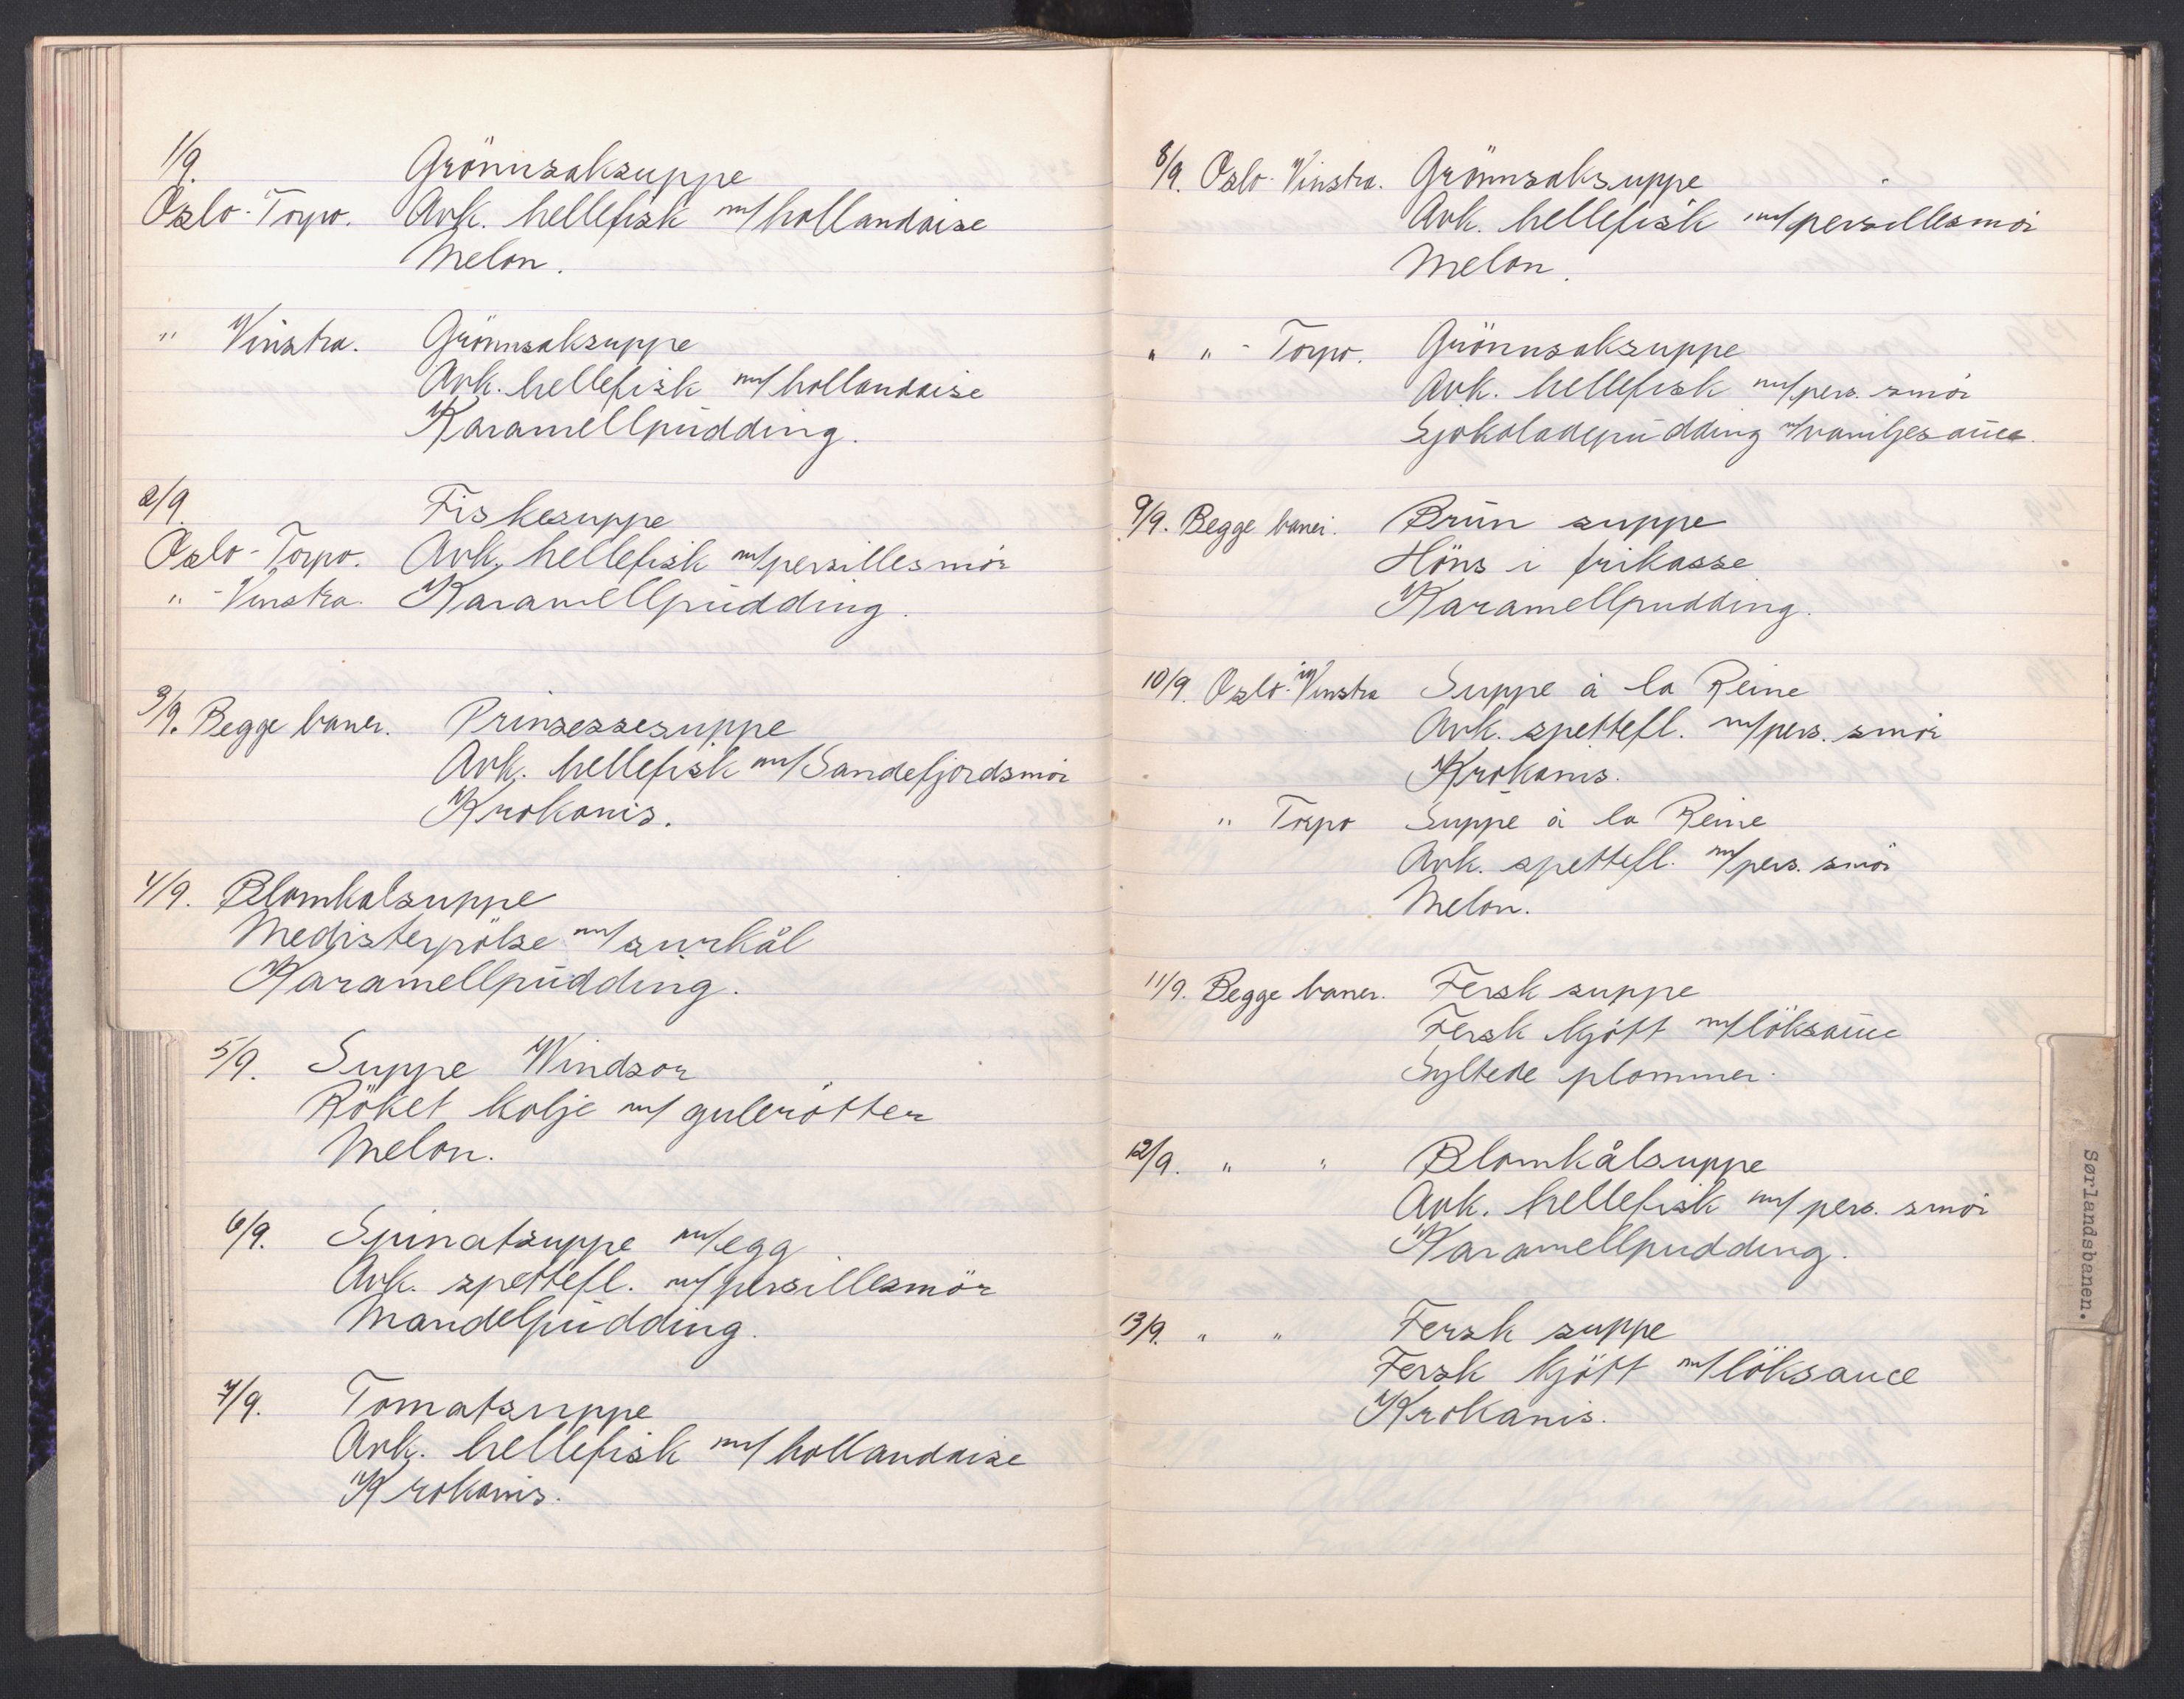 1/9. Grönnsaksuppe
Oslo-Torpo. Avk. hellefisk m/hollandaise
Melon.
" Vinstra. Grönnsaksuppe
Avk. hellefisk m/hollandaise
Karamellpudding.
2/9. Fiskesuppe
Oslo-Torpo. Avk. hellefisk m/persillesmör
" -Vinstra. Karamellpudding.
3/9. Begge baner. Prinsessesuppe
Avk. hellefisk m/Sandefjordsmör
Krokanis.
4/9. Blomkalsuppe
Medisterpölse m/surkål
Karamellpudding.
5/9. Suppe Windsor
Röket kolje m/ gulerötter
Melon.
6/9. Spinatsuppe m/egg
Avk. spettefl. m/persillesmör
Mandelpudding.
7/9. Tomatsuppe
Avk. hellefisk m/ hollandaise
Krokanis.
8/9. Oslo-Vinstra. Grönnsaksuppe
Avk. hellefisk m/persillesmör
Melon.
" " - Torpo. Grönnsaksuppe
Avk. hellefisk m/pers. smör
Sjokoladepudding m/vaniljesauce.
9/9. Begge baner. Brun suppe
Höns i frikasse
Karamellpudding.
10/9. Oslo-Vinstra Suppe à la Reine
Avk. spettefl. m/pers. smör
Krokanis.
" Torpo Suppe à la Reine
Avk. spettefl. m/pers. smör
Melon.
11/9. Begge baner. Fersk suppe
Fersk kjött m/löksauce
Syltede plommer.
12/9. " " Blomkålsuppe
Avk. hellefisk m/ pers. smör
Karamellpudding.
13/9. " " Fersk suppe
Fersk kjött m/löksauce
Krokanis.
Sørlandsbanen.